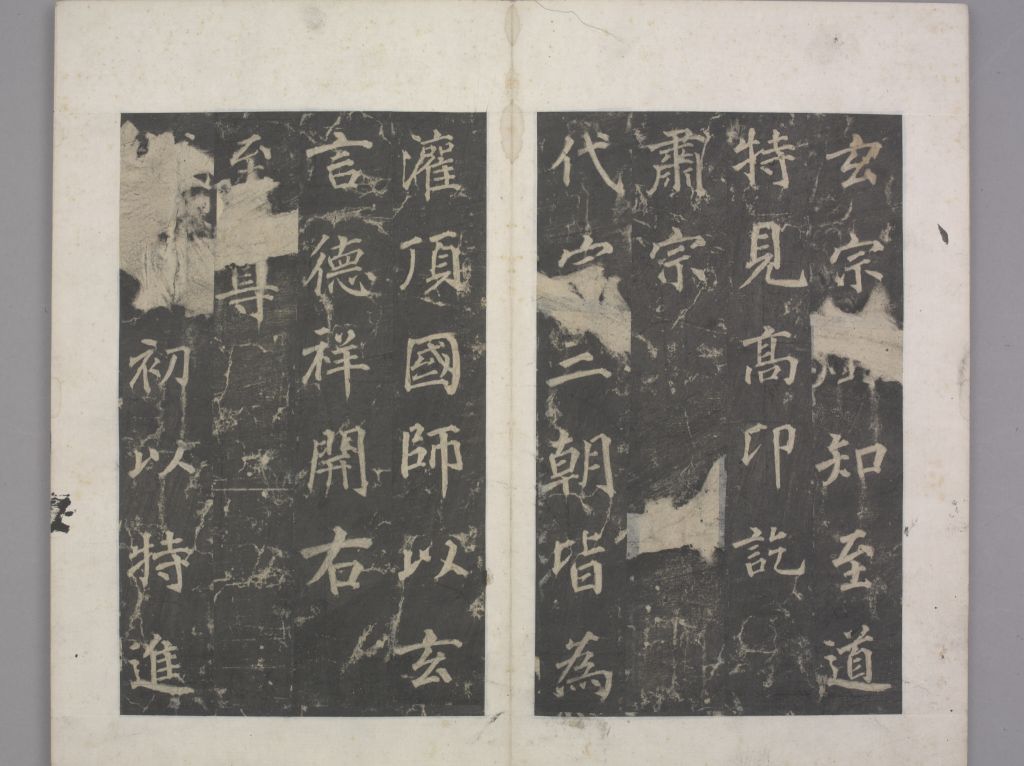 玄宗知至道
特見高印訖
肅宗
代宗三朝皆為
灌頂國師以玄
言德祥開右
至尊
初以特進